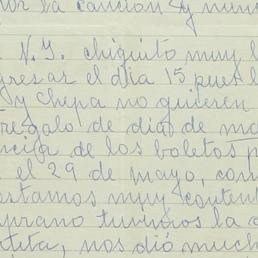 por la canción y nunc
N.Y. chiquito muy l
gresar el dia 15 pues l
y chepa no quieren
regalo de dias de ma
ncia de los boletos p
el 29 de mayo, com
stamos muy content
prano tuvimos la
tita, nos dió much